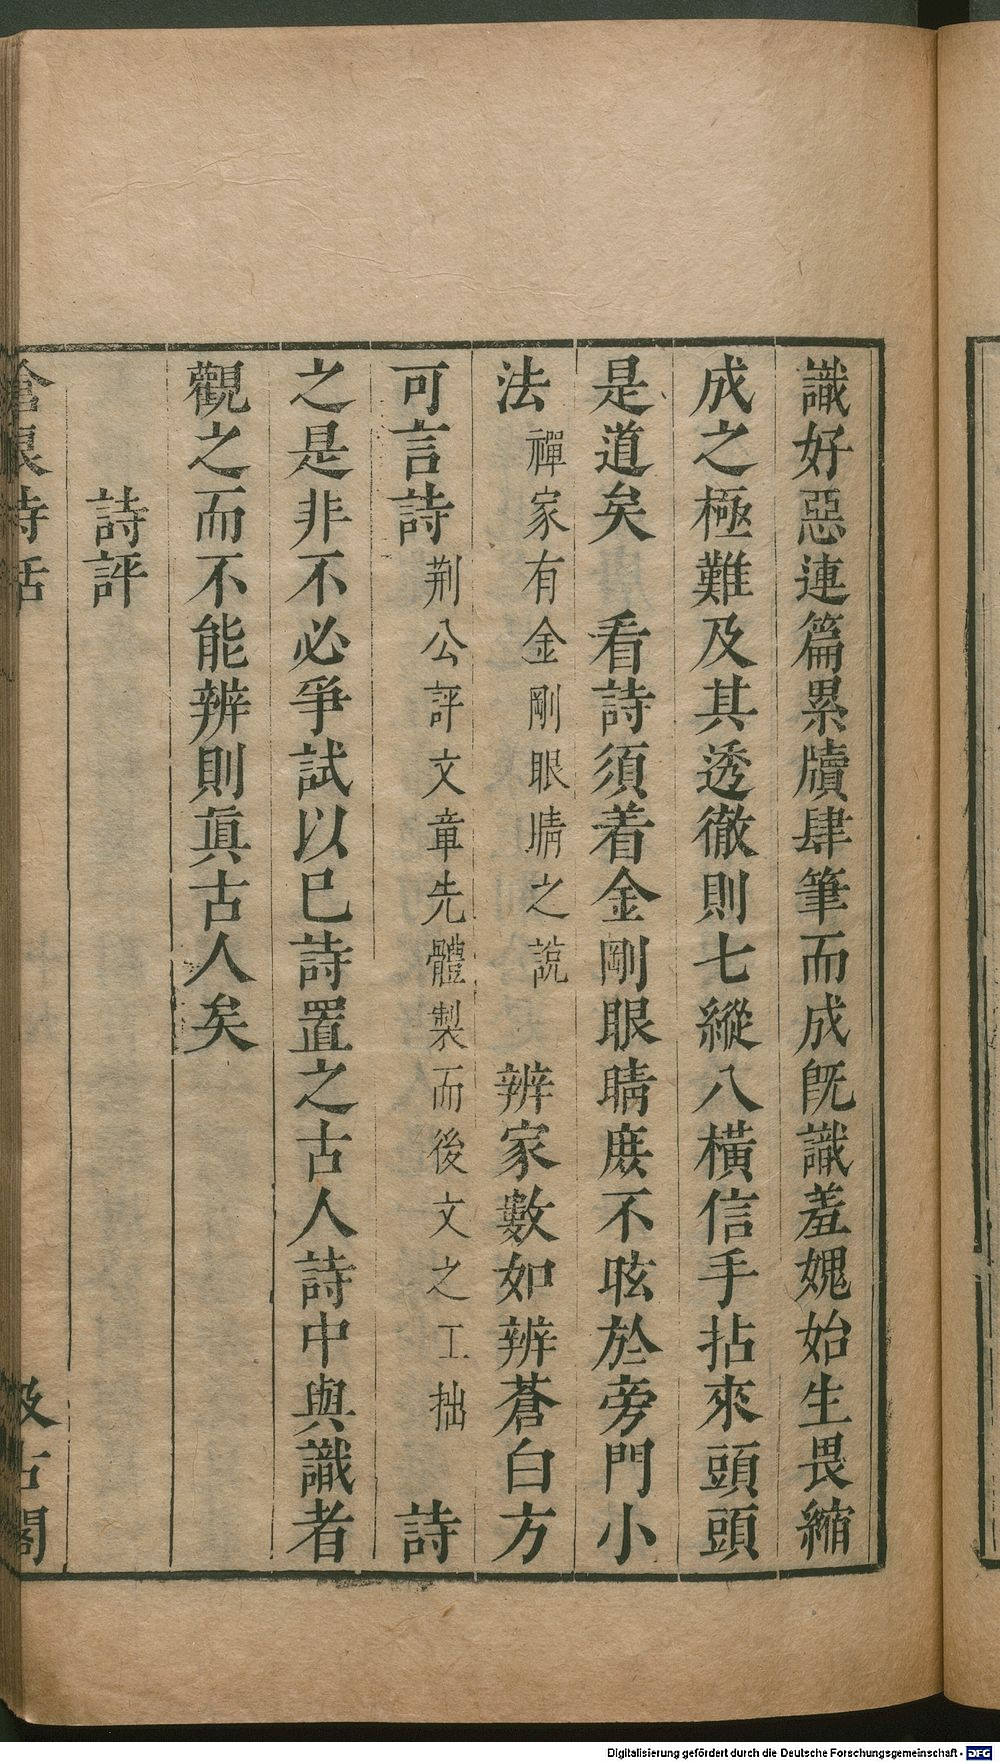 識好惡連篇累牘肆筆而成旣識羞媿始生畏縮
成之極難及其透徹則七縱八橫信手拈來頭頭
是道矣 看詩須着金剛眼睛庻不眩於旁門小
法 禪家有金剛眼睛之說 辨家數如辨蒼白方
可言詩 荆公評文章先體製而後文之工拙 詩
之是非不必爭試以巳詩置之古人詩中與識者
觀之而不能辨則眞古人矣
詩評
滄浪詩話 汲古閣
Digitalisierung gefördert durch die Deutsche Forschungsgemeinschaft - DFG